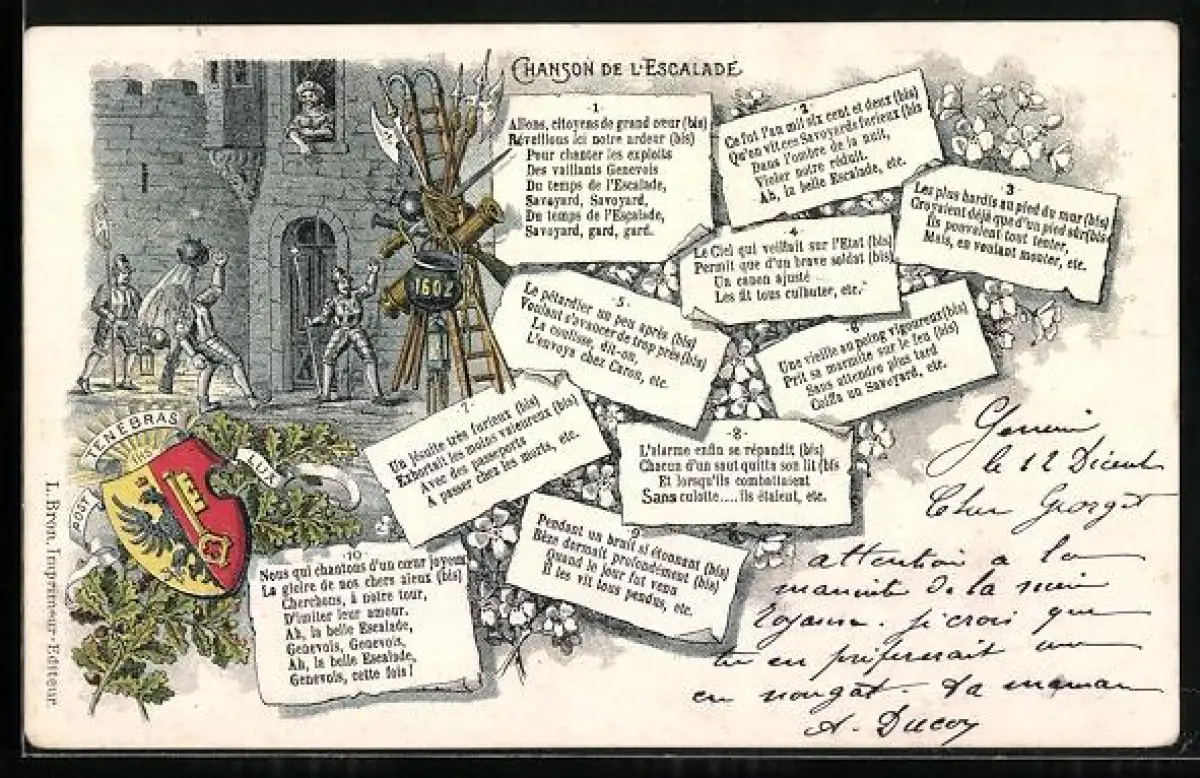 CHANSON DE L'ESCALADE
-1-
Allons, citoyens de grand cœur (bis)
Réveillons ici notre ardeur (bis)
Pour chanter les exploits
Des vaillants Genevois
Du temps de l'Escalade,
Savoyard, Savoyard,
Du temps de l'Escalade,
Savoyard, gard, gard.
-2-
Ce fut l'an mil six cent et deux (bis)
Qu'on vit ces Savoyards furieux (bis
Dans l'ombre de la nuit,
Violer notre réduit.
Ah, la belle Escalade, etc.
3
Les plus hardis au pied du mur (bis)
Croyaient déjà que d'un pied sûr (bis
Ils pouvaient tout tenter,
Mais, en voulant monter, etc.
-4-
Le Ciel qui veillait sur l'Etat (bis)
Permit que d'un brave soldat (bis)
Un canon ajusté
Les fit tous culbuter, etc.
-5-
Le pétardier un peu après (bis)
Voulant s'avancer de trop près (bis)
La coulisse, dit-on,
L'envoya chez Caron, etc.
-6-
Une vieille au poing vigoureux (bis)
Prit sa marmite sur le feu (bis)
Sans attendre plus tard
Coiffa un Savoyard, etc.
-7-
Un Jésuite très furieux (bis)
Exhortait les moins valeureux (bis)
Avec des passeports
A passer chez les morts, etc.
-8-
L'alarme enfin se répandit (bis)
Chacun d'un saut quitta son lit (bis
Et lorsqu'ils combattaient
Sans culotte....ils étaient, etc.
-9-
Pendant un bruit si étonnant (bis)
Bèze dormait profondément (bis)
Quand le jour fut venu
Il les vit tous pendus, etc.
-10-
Nous qui chantons d'un cœur joyeux
La gloire de nos chers aïeux (bis)
Cherchons, à notre tour,
D'imiter leur amour.
Ah, la belle Escalade,
Genevois, Genevois,
Ah, la belle Escalade,
Genevois, cette fois!
1602
POST TENEBRAS LUX
IHS
L. Bron, Imprimeur-Editeur.
le 12 Décemb
Cher Georges
attention a la
marmite de la mère
Royaume. je crois que
tu en préfererait une
en nougat. Ta maman
A. Ducoy